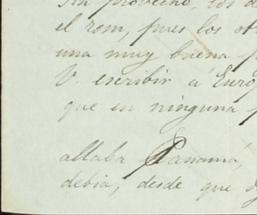 sin provecho, los d
el rom, pues los ot
una muy buena p
V escribir á Euro
que en ninguna p
allaba Panamá,
debia, desde que